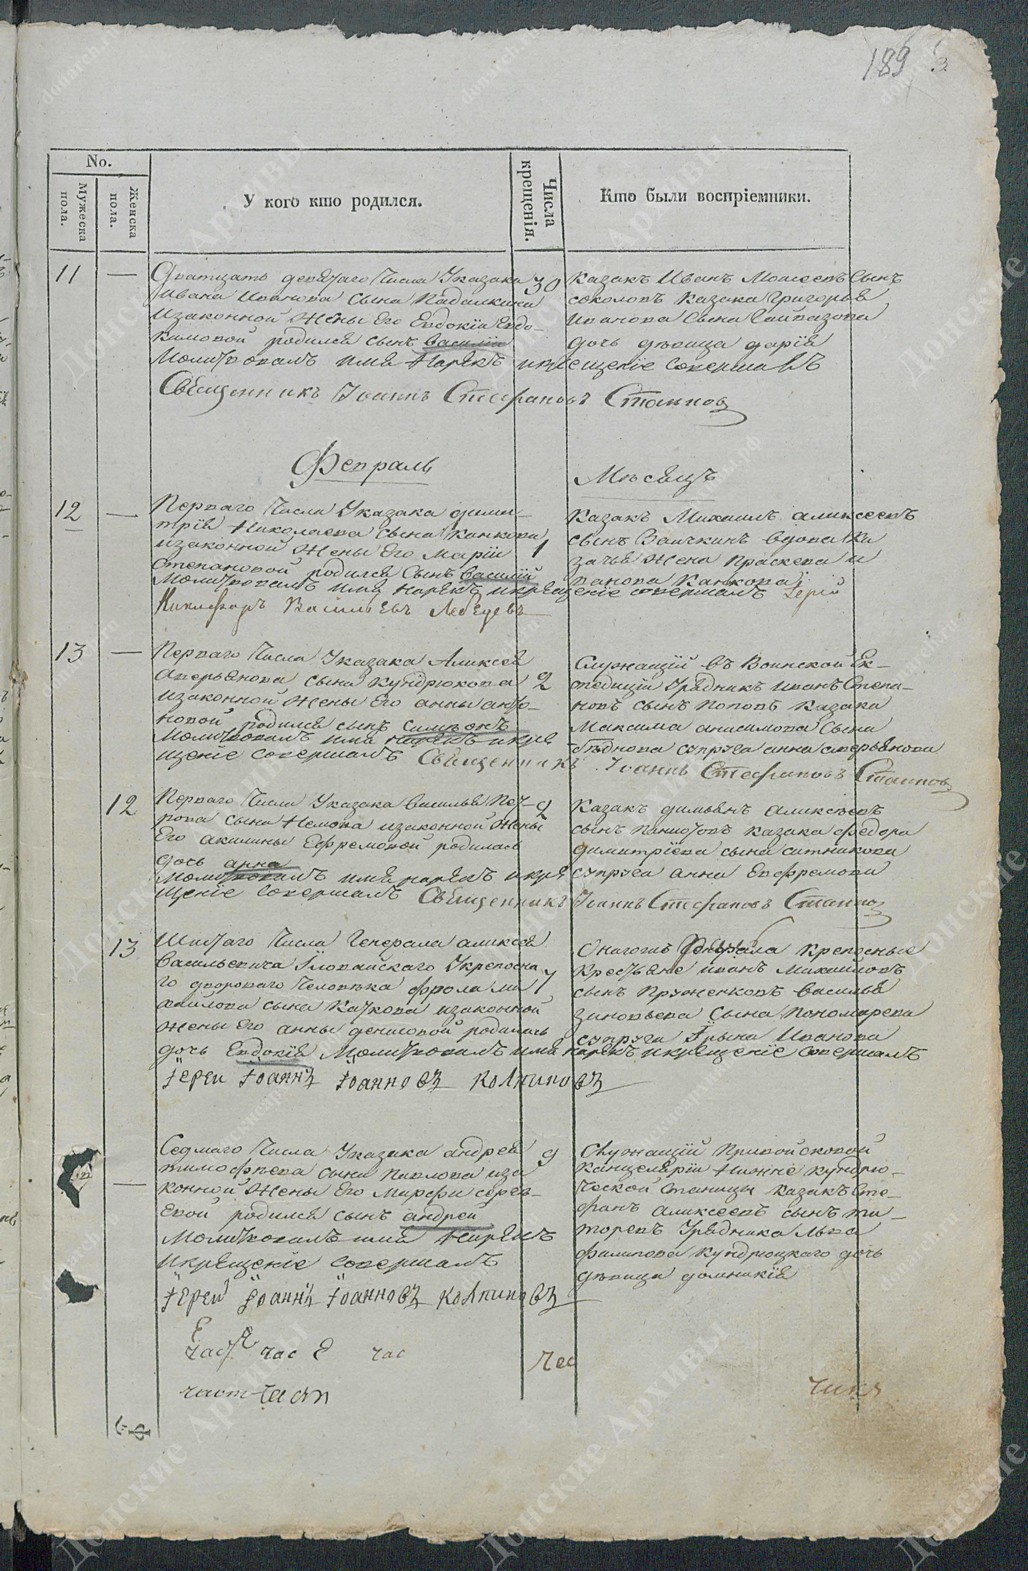 189
No.
Мужеска пола.
Женска пола.
У кого кто родился.
Числа крещенія.
Кто были воспріемники.
11 —
Дватцать девятаго Числа Указака
Ивана Иванова Сына Кадалкина
изаконной Жены Его Евдокіи Евдо-
кимовой родился сынъ Василій
Молитвовалъ имя Нарекъ икрещеніе совершалъ
Священникъ Іоаннъ Стефановъ
30
Казакъ Иванъ Моисеевъ Сынъ
соколовъ Казака Григорья
Иванова Сына
дочь дѣвица дарія
Февраль
Мѣсяцъ
12 —
Перваго Числа Указака дими-
трія Николаева сына Канкова
изаконной Жены Его Маріи
Степановой родился Сынъ Василій
Молитвовалъ имя нарекъ икрещеніе совершалъ Іерей
Никифоръ Васильевъ Лебедевъ
1
Казакъ Михаилъ аликсеевъ
сынъ вдова ка
зачья Жена Праскева и
ванова Канкова
13 —
Перваго Числа Указака Аликсея
Аверьянова сына Кундрюкова
изаконной Жены Его анны анто-
новой родился сынъ Симеонъ
Молитвовалъ имя нарекъ икре
щеніе совершалъ Священникъ Іоаннъ Стефановъ
2
Служащій въ Воинской Ек-
спедиціи Урядникъ иванъ Степа-
новъ сынъ Поповъ Казака
Максима анисимова Сына
бѣднова супруга анна аверьянова
12
Перваго Числа Указака Василья Пет-
рова сына Немова изаконной Жены
Его акилины Ефремовой родилась
дочь анна
Молитвовалъ имя нарекъ икре
щеніе совершалъ Священникъ Іоаннъ Стефановъ
2
Казакъ димьянъ аликсѣевъ
сынъ казака федора
димитріева сына ситникова
супруга анна Евфремова
13
Шистаго Числа Генерала аликсея
Васильевича Іловайскаго Укрепосна
го двороваго Человѣка фрола ми
хайлова сына Каткова изаконной
Жены Его анны дениловой родилась
дочь Евдокія Молитвовалъ имя нарекъ икрещеніе совершалъ
Іерей Іоаннъ Іоанновъ Колпиковъ
7
Онагожъ Генерала Крепосныя
Крестьяне иванъ Михайловъ
сынъ Пруженковъ василья
зиновьева Сына Пономарева
супруга Ірына Иванова
—
Седмаго Числа Указака андрея
тимофѣева сына Павлова иза
конной Жены Его Марфы серге-
евой родился сынъ андрей
Молитвовалъ имя Нарекъ
икрещеніе совершалъ
Іерей Іоаннъ Іоанновъ Колпиковъ
9
Служащій Привойсковой
Канцеляріи Нижне кундрю-
ческой Станицы казакъ Сте-
фанъ аликсеевъ сынъ ти-
торевъ Урядника Льва
филипова Кундрюцкаго дочь
дѣвица домникія
час час